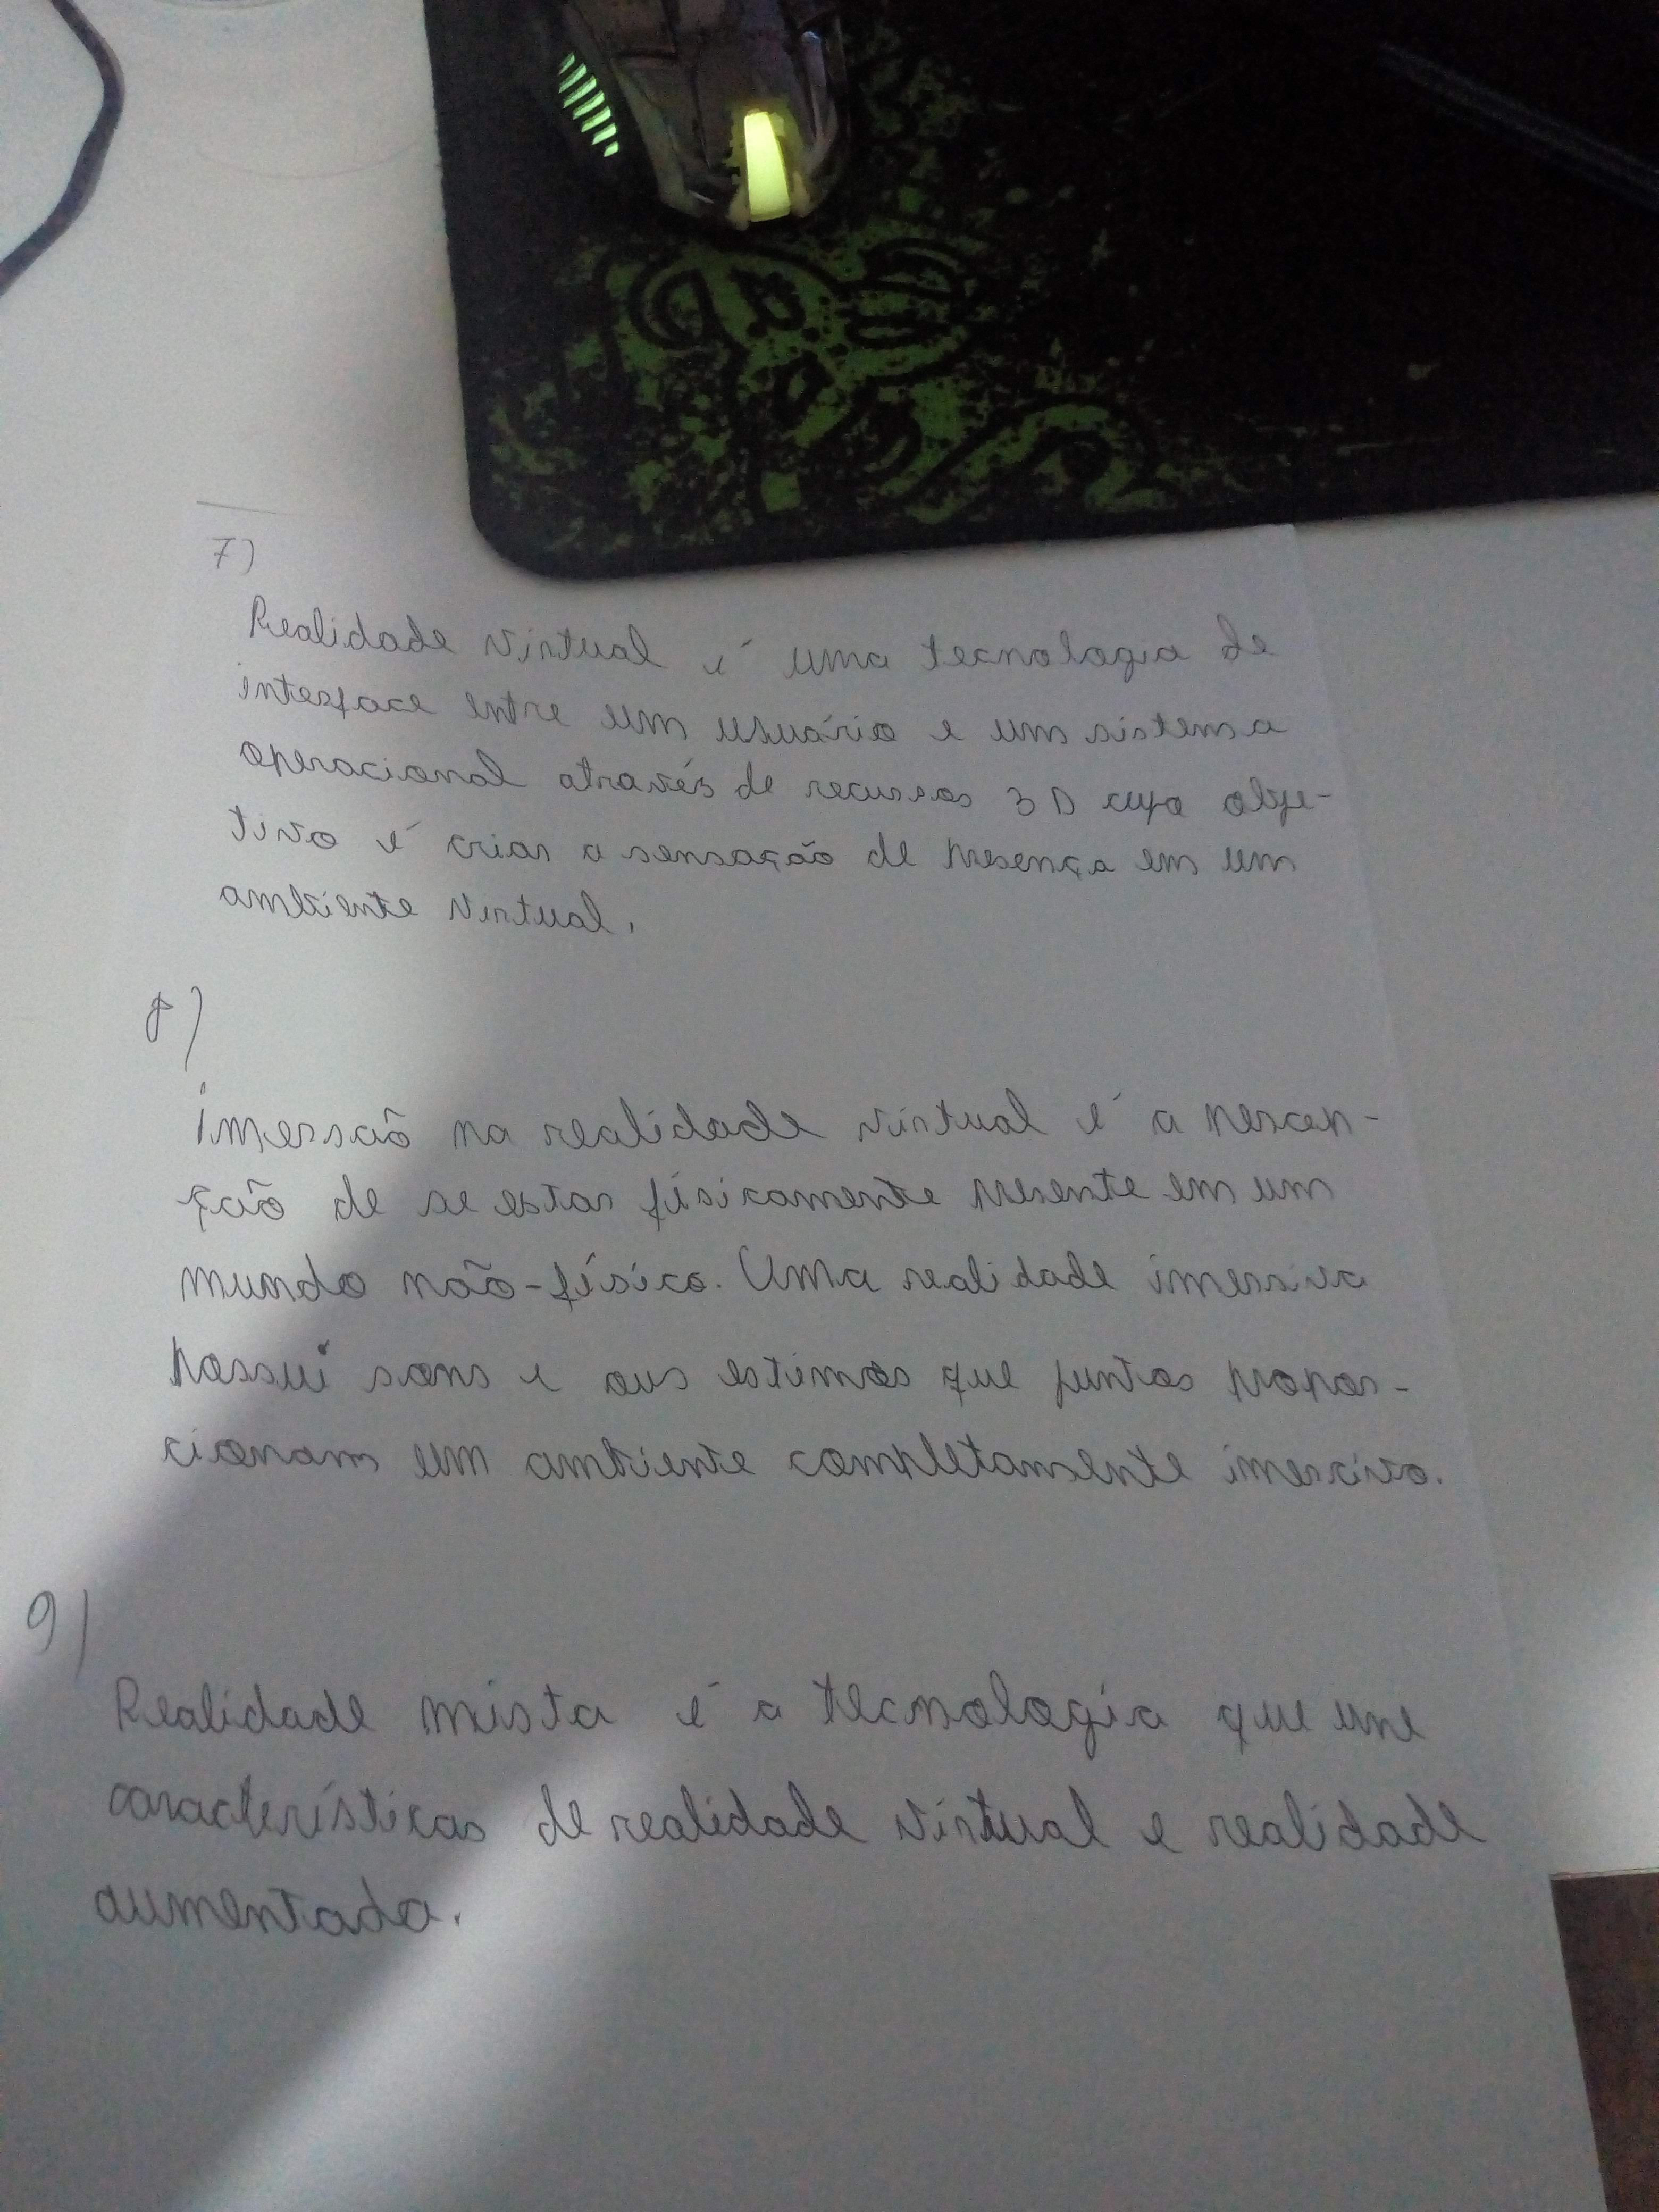 7)
Realidade virtual é uma tecnologia de
interface entre um usuário e um sistema
operacional através de recursos 3D cujo obje-
tivo é criar a sensação de presença em um
ambiente virtual.
8)
imersão na realidade virtual é a percep-
ção de se estar fisicamente presente em um
mundo não-físico. Uma realidade imersiva
possui sons e ous estimos que juntos propor-
cionam um ambiente completamente imersivo.
9)
Realidade mista é a tecnologia que une
características de realidade virtual e realidade
aumentada.